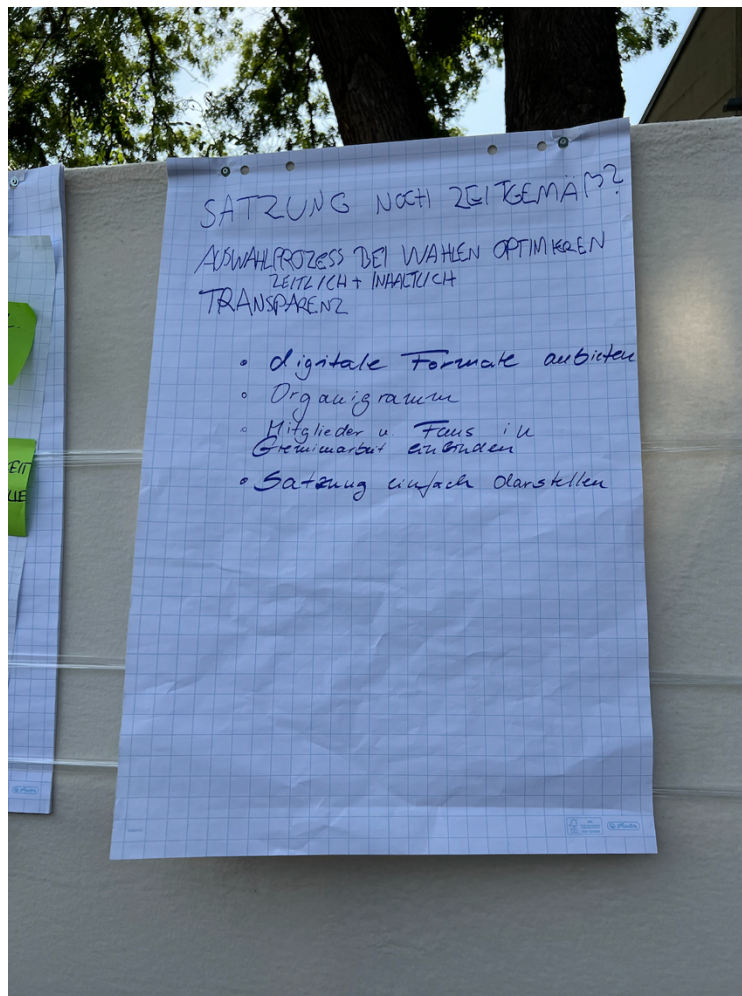 SATZUNG NOCH ZEITGEMÄß?
AUSWAHLPROZESS BEI WAHLEN OPTIMIEREN
ZEITLICH + INHALTLICH
TRANSPARENZ
• digitale Formate anbieten
• Organigramm
• Mitglieder u. Fans in
Gremienarbeit einbinden
• Satzung einfach darstellen